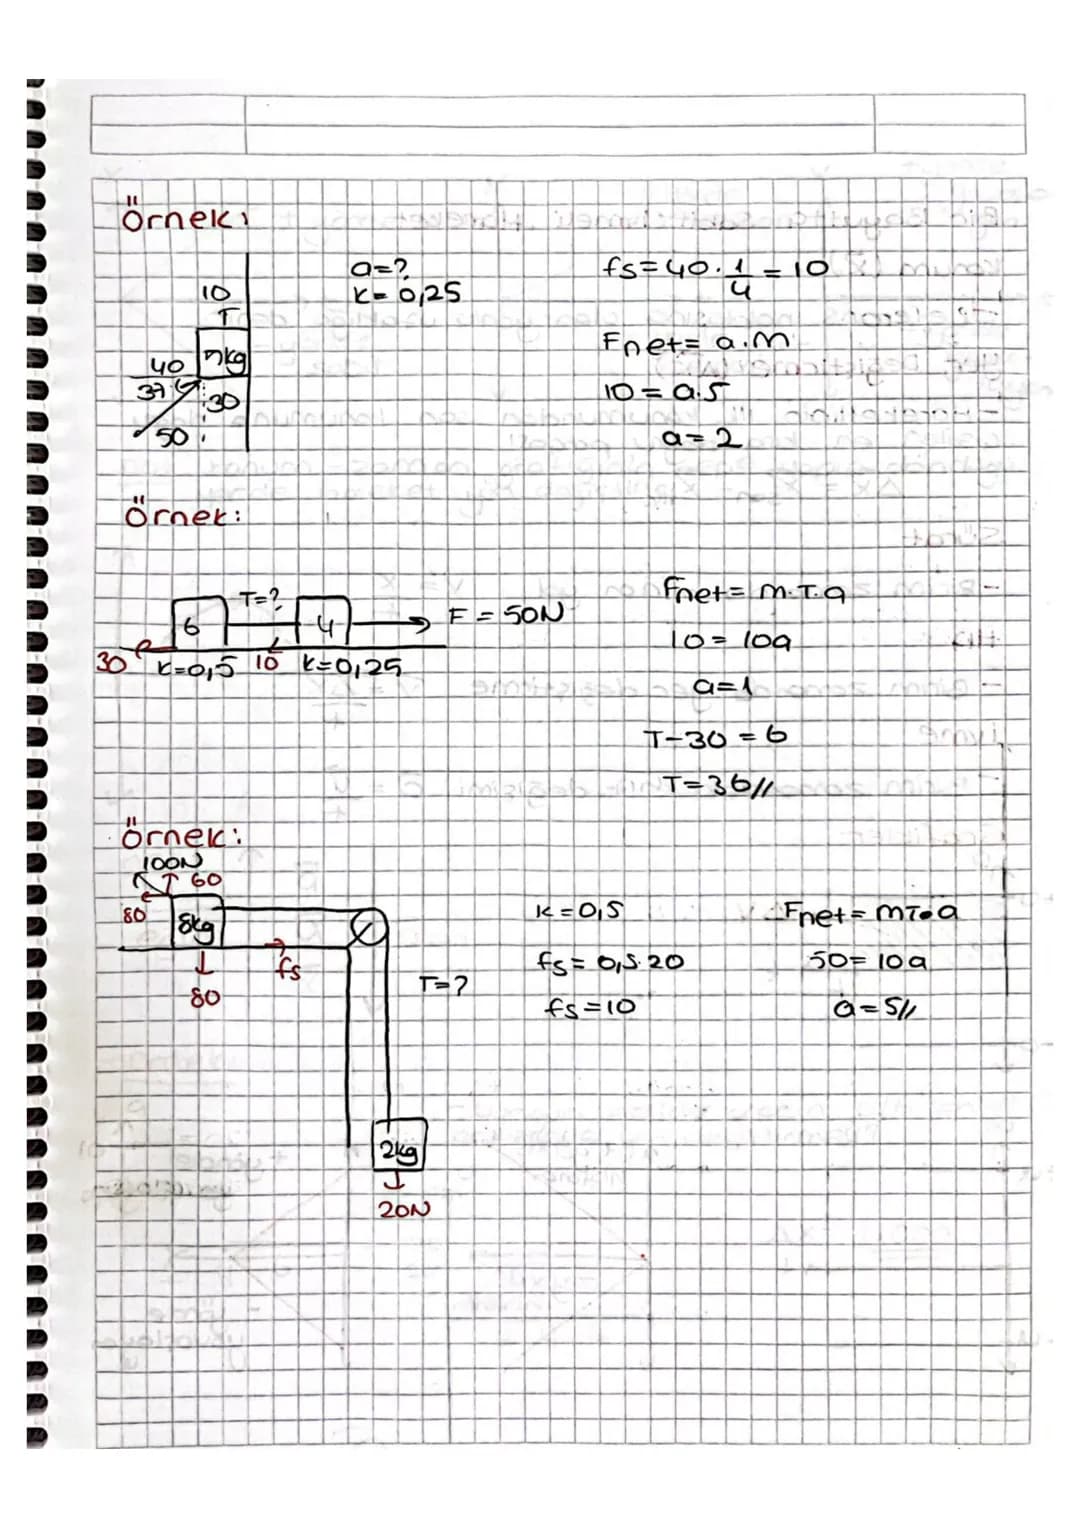 Örnek:
a=?
k=0,25
fs=40.1/4=10
10
40
37
30
50
Fnet=a.m
10=a.5
a=2
Örnek:
T=?
6
4
F=50N
30
k=0,5
10
k=0,25
Fnet=m.T.a
10=10a
a=1
T-30=6
T=36//
Örnek:
100N
60
80
8kg
fs
80
T=?
2kg
20N
k=0,5
fs=0,5.20
fs=10
Fnet=mT.a
50=10a
a=5//